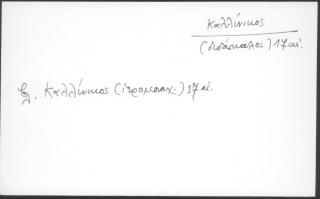 Καλλίνικος
(διδάσκαλος) 17 αἰ.
βλ. Καλλίνικος (ἱερομοναχ.) 17 αἰ.